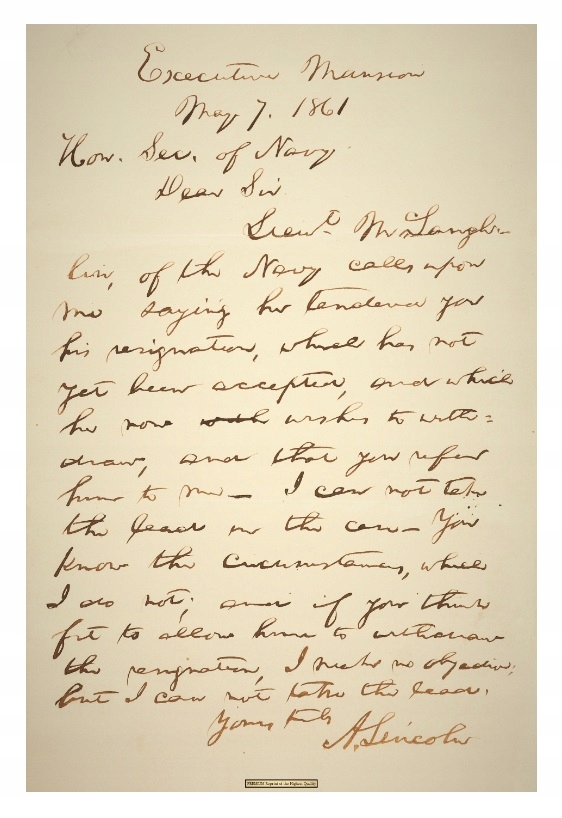 Executive Mansion
May 7. 1861
Hon. Sec. of Navy.
Dear Sir
Lieut. McLaugh-
lin, of the Navy calls upon
me saying he tendered you
his resignation, which has not
yet been accepted, and which
he now wishes to with=
draw, and that you refer
him to me— I can not take
the lead in the case— You
know the circumstances, which
I do not; and if you think
fit to allow him to withdraw
the resignation, I make no objection;
but I can not take the lead.
Yours truly
A. Lincoln
PREMIUM Reprint of the Highest Quality